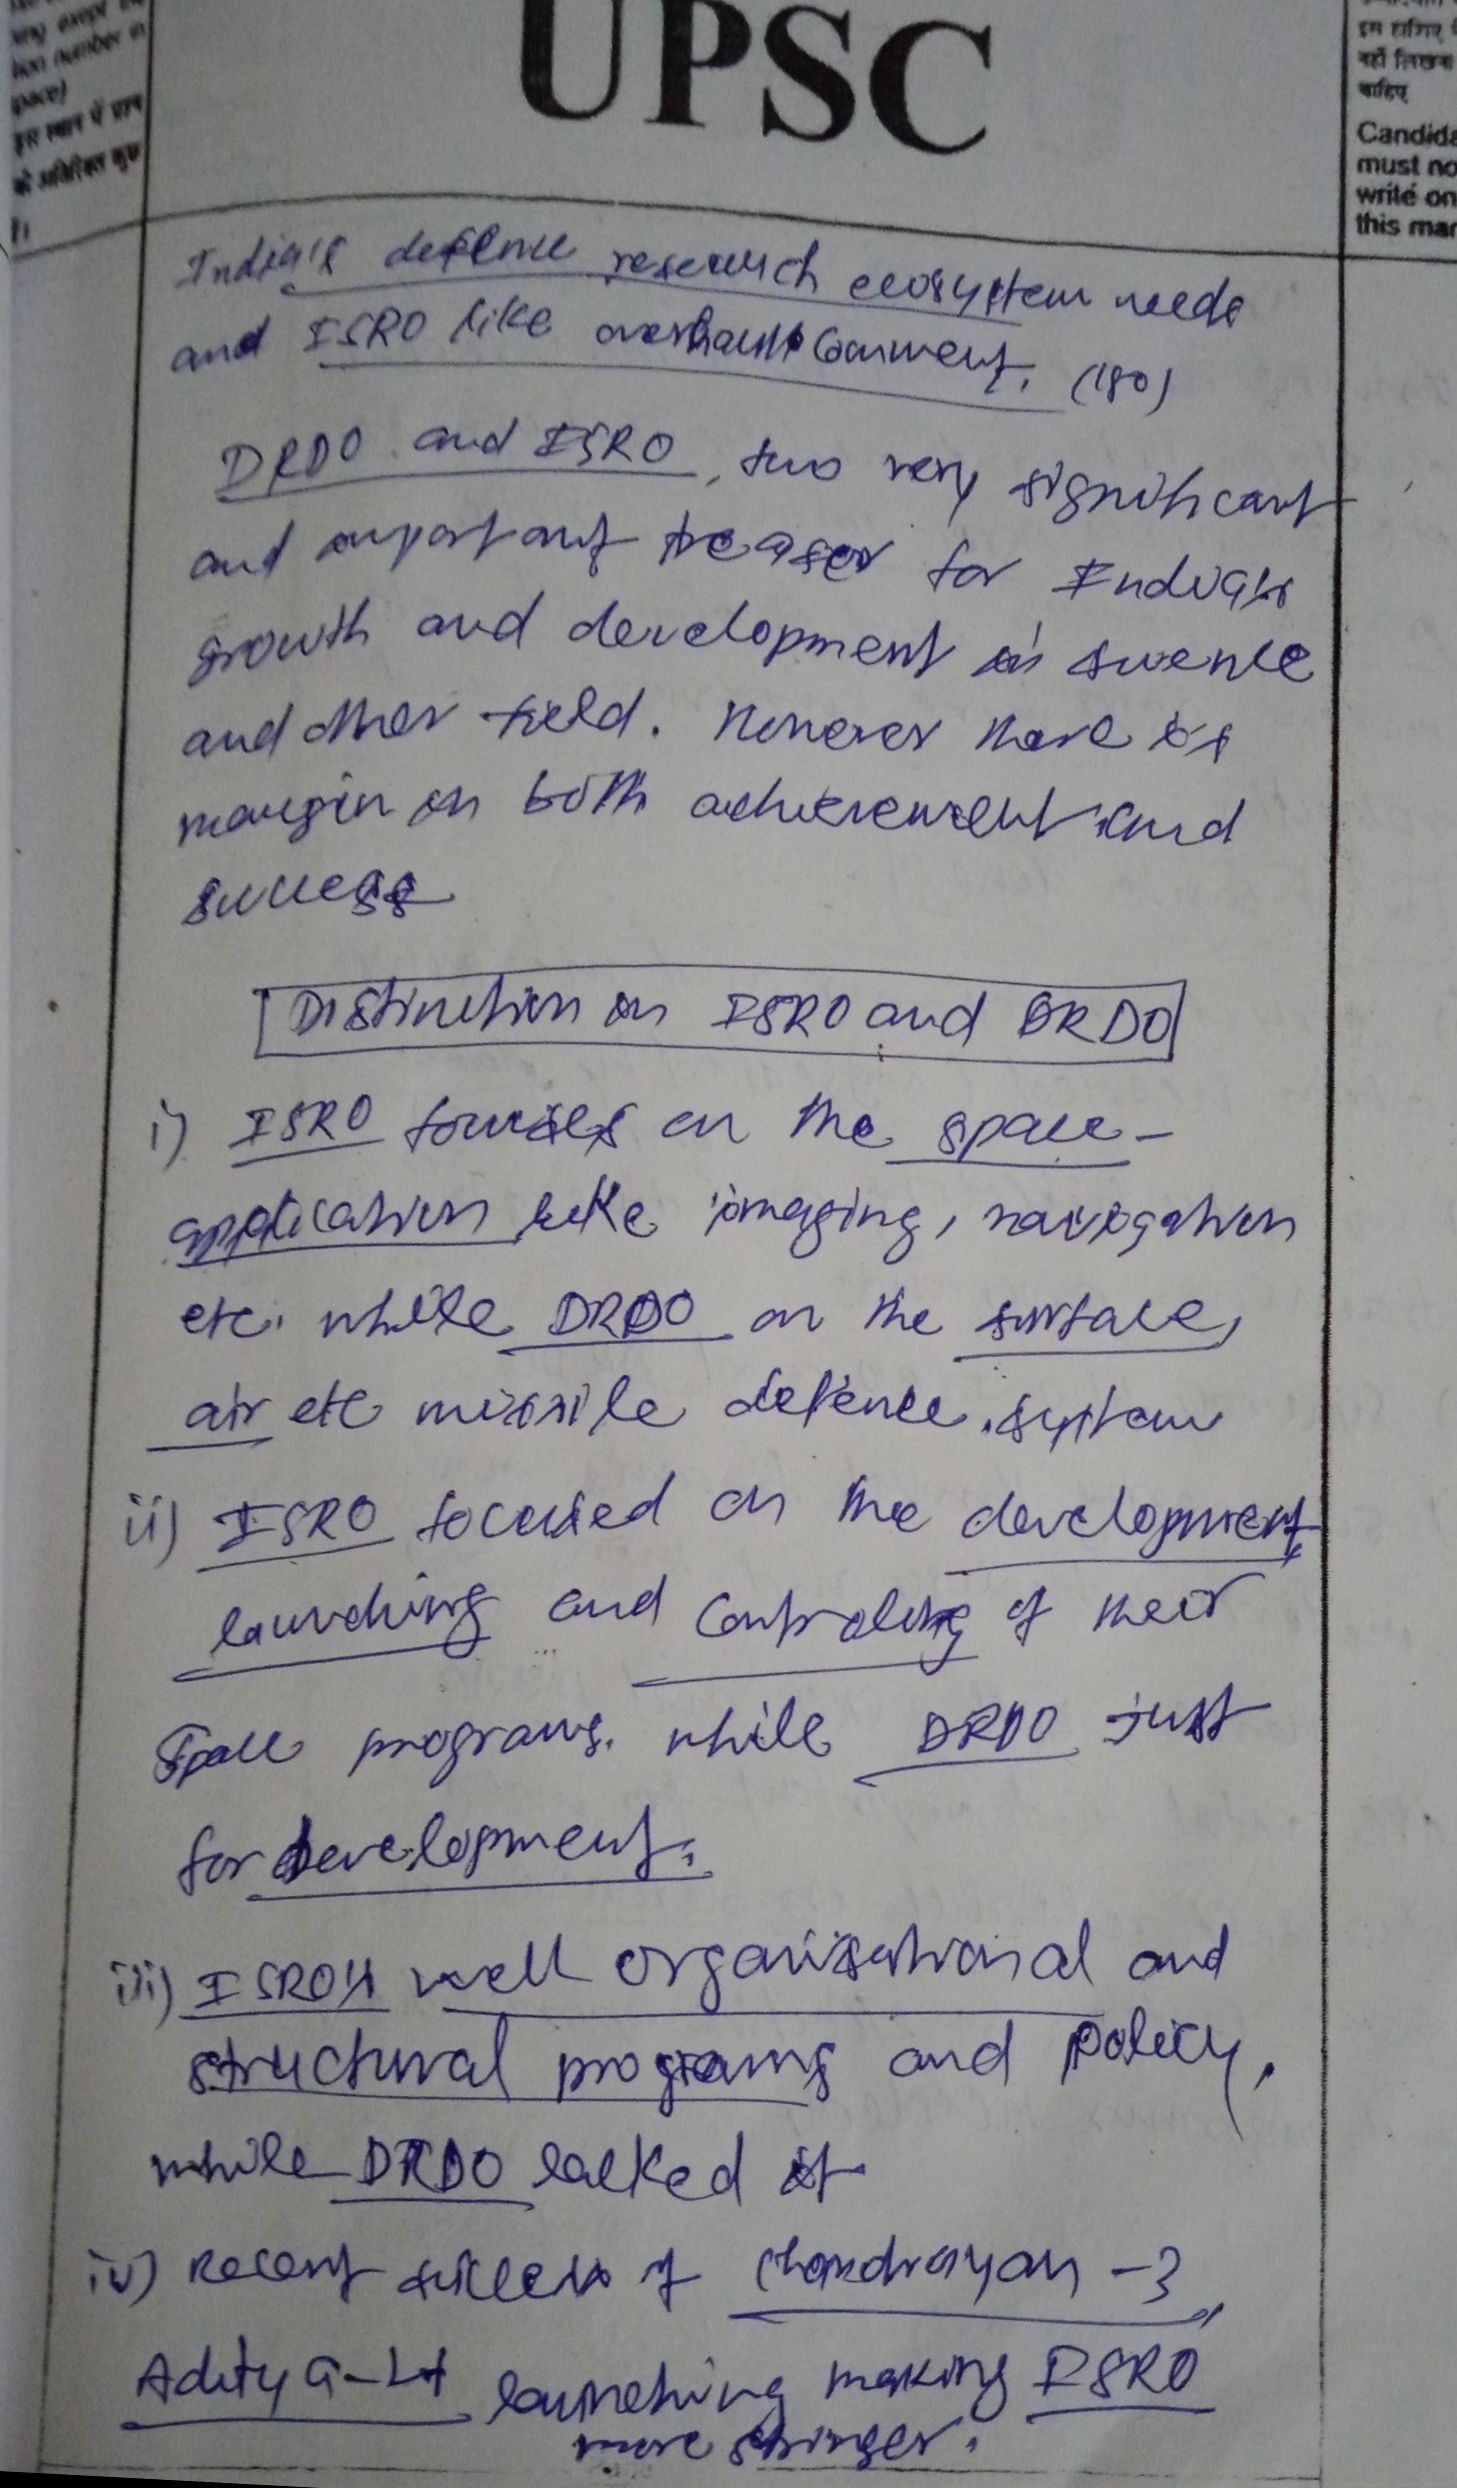 ing exept the
tion number in
pace)
इस स्थान में प्रश्न
के अतिरिक्त कुछ
UPSC
इस हाशिए
नहीं लिखना
चाहिए
Candida
must no
write on
this mar
India's defence research ecosystem needs
and ISRO like overhaul Comment. (180)
DRDO and ISRO, two very significant
and important for Indias
growth and development in science
and other field. However there is
margin on both achievement and
success
Distinction on ISRO and DRDO
i) ISRO focuses on the space-
application like imaging, navigation
etc. while DRDO on the surface,
air etc missile defence system
ii) ISRO focused on the development,
launching and Controling of their
Space programs. while DRDO just
for development.
iii) ISRO's well organisational and
structural programs and policy,
while DRDO lacked it
iv) Recent success of Chandrayan-3,
Aditya-L1 launching making ISRO
more stringer.